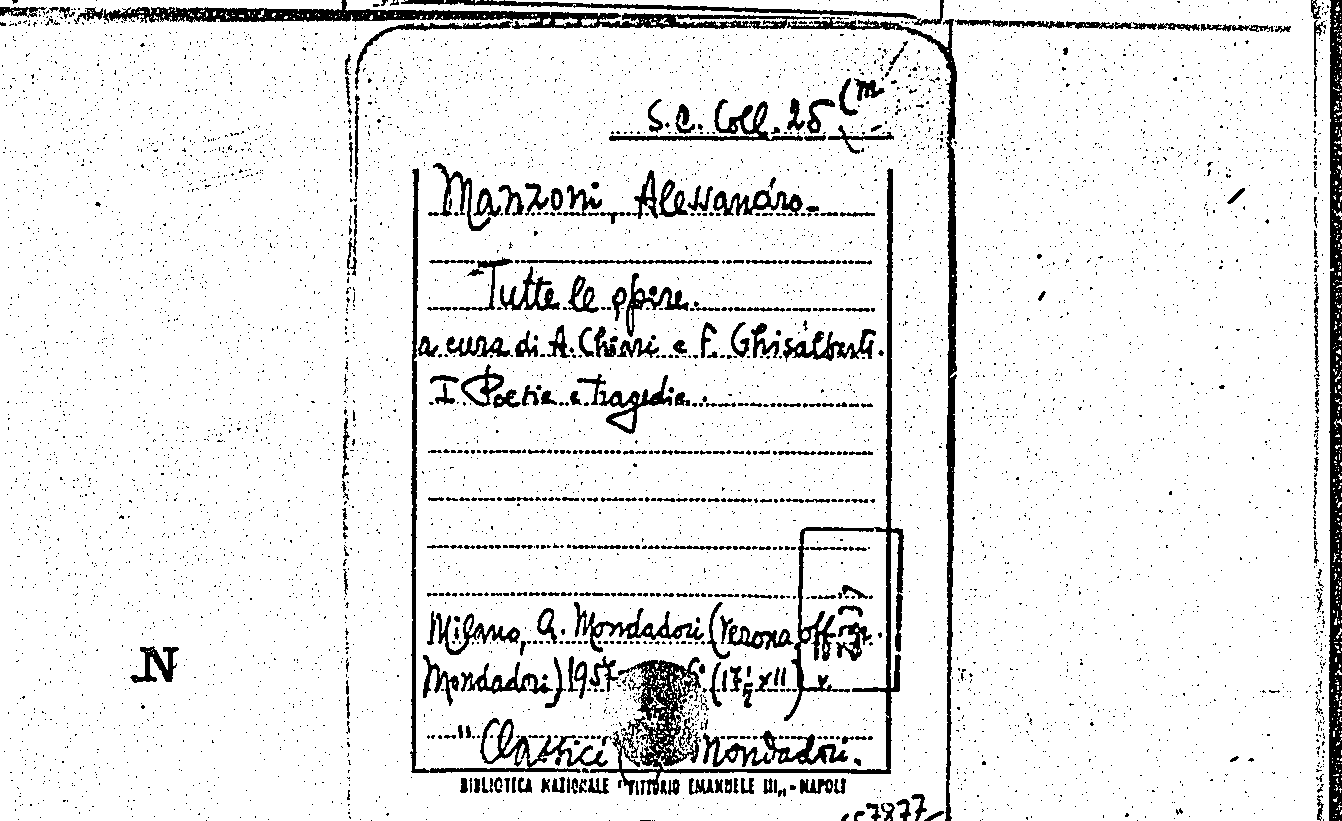 S.C. Coll. 25 (m
Manzoni, Alessandro-
Tutte le opere.
a cura di A. Chiari e F. Ghisalberti.
I Poesie e tragedie.
Milano, A. Mondadori (Verona, off.
N
Mondadori) 1957 (17½ x 11) v.
"Classici Mondadori.
BIBLIOTECA NAZIONALE "VITTORIO EMANUELE III" - NAPOLI
57877